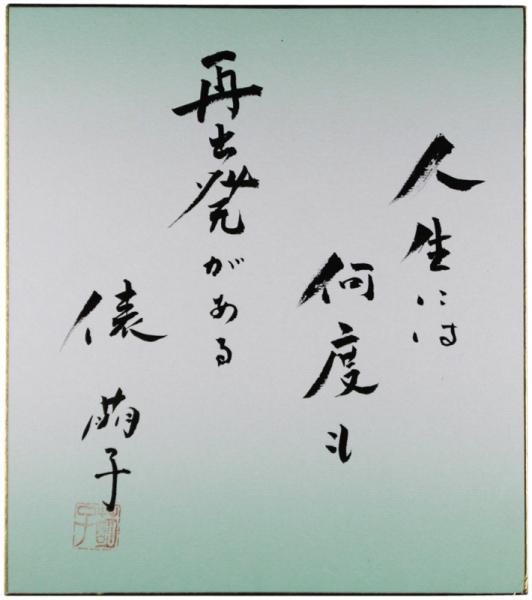 人生には
何度も
再出発がある
俵 萠子